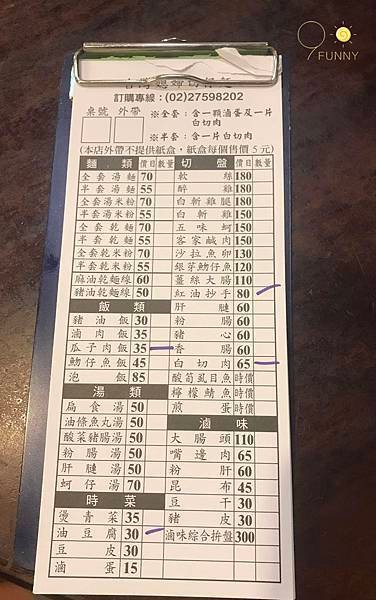 9 FUNNY
訂購專線：(02)27598202
桌號 外帶
※全套：含一顆滷蛋及一片白切肉
※半套：含一片白切肉
(本店外帶不提供紙盒，紙盒每個售價5元)
麵類 價目 數量
全套湯麵 70
半套湯麵 55
全套湯米粉 70
半套湯米粉 55
全套乾麵 70
半套乾麵 55
全套乾米粉 70
半套乾米粉 55
麻油乾麵線 60
豬油乾麵線 50
飯類
豬油飯 30
滷肉飯 35
瓜子肉飯 35
魩仔魚飯 45
泡飯 85
湯類
扁食湯 50
油條魚丸湯 50
酸菜豬腸湯 50
粉腸湯 50
肝腱湯 50
蚵仔湯 70
時菜
燙青菜 35
油豆腐 30
豆皮 30
滷蛋 15
切盤 價目 數量
軟絲 180
醉雞 180
白斬雞腿 180
白斬雞 150
五味蚵 150
客家鹹肉 150
沙拉魚卵 130
銀芽魩仔魚 120
薑絲大腸 110
紅油抄手 80
肝腱 60
粉腸 60
豬心 60
香腸 60
白切肉 65
酸筍虱目魚 時價
檸檬鯖魚 時價
煎蛋 時價
滷味
大腸頭 110
嘴邊肉 65
粉肝 60
昆布 45
豆干 30
豬皮 30
滷味綜合拚盤 300